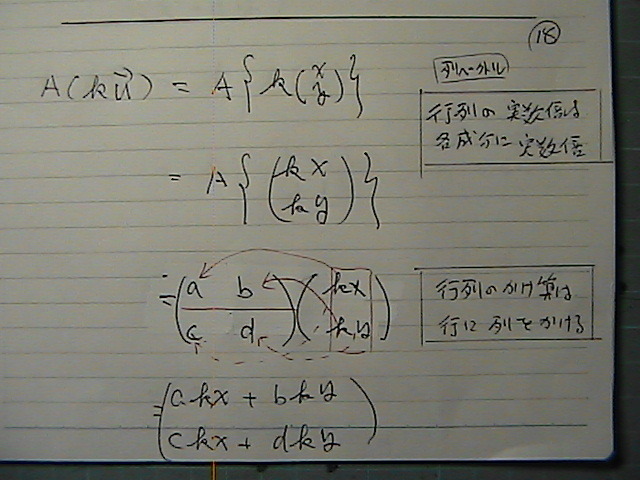 ⑱
A(ku⃗) = A{k(x y)}
列ベクトル
行列の実数倍は
各成分に実数倍
= A{(kx ky)}
= (a b c d)(kx ky)
行列のかけ算は
行に列をかける
= (akx + bky
ckx + dky)